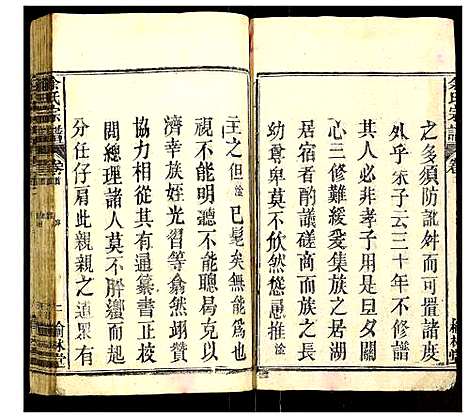 余氏宗譜
卷
之多須防訛舛而可置諸度
外乎朱子云三十年不修譜
其人必非孝子用是旦夕關
心三修難緩爰集族之居湖
居宿者酌議磋商而族之長
幼尊卑莫不欣然慫恿推淦
主之但淦已髦矣無能爲也
視不能明聽不能聰曷克有
濟幸族姪光習等翕然翊贊
協力相與有通彙書正校
閱總理諸人莫不胼纘而起
分任仔肩此親親之道果有
余氏宗譜
卷首
二
榆林堂